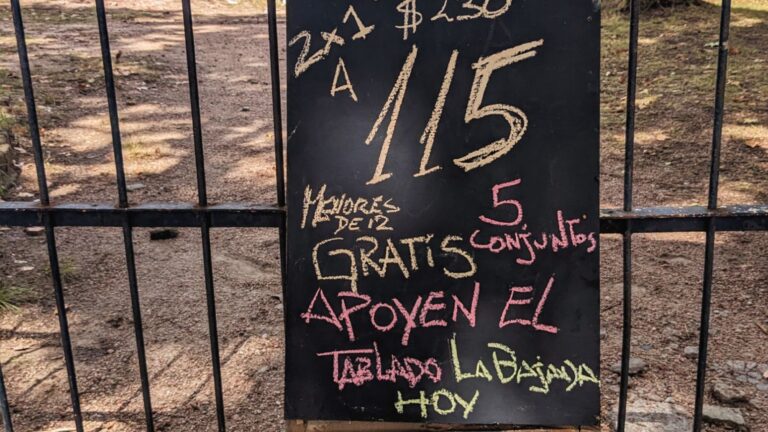 2x1 $230
A 115
MENORES
DE 12
GRATIS
5
CONJUNTOS
APOYEN EL
TABLADO LA BAJADA
HOY